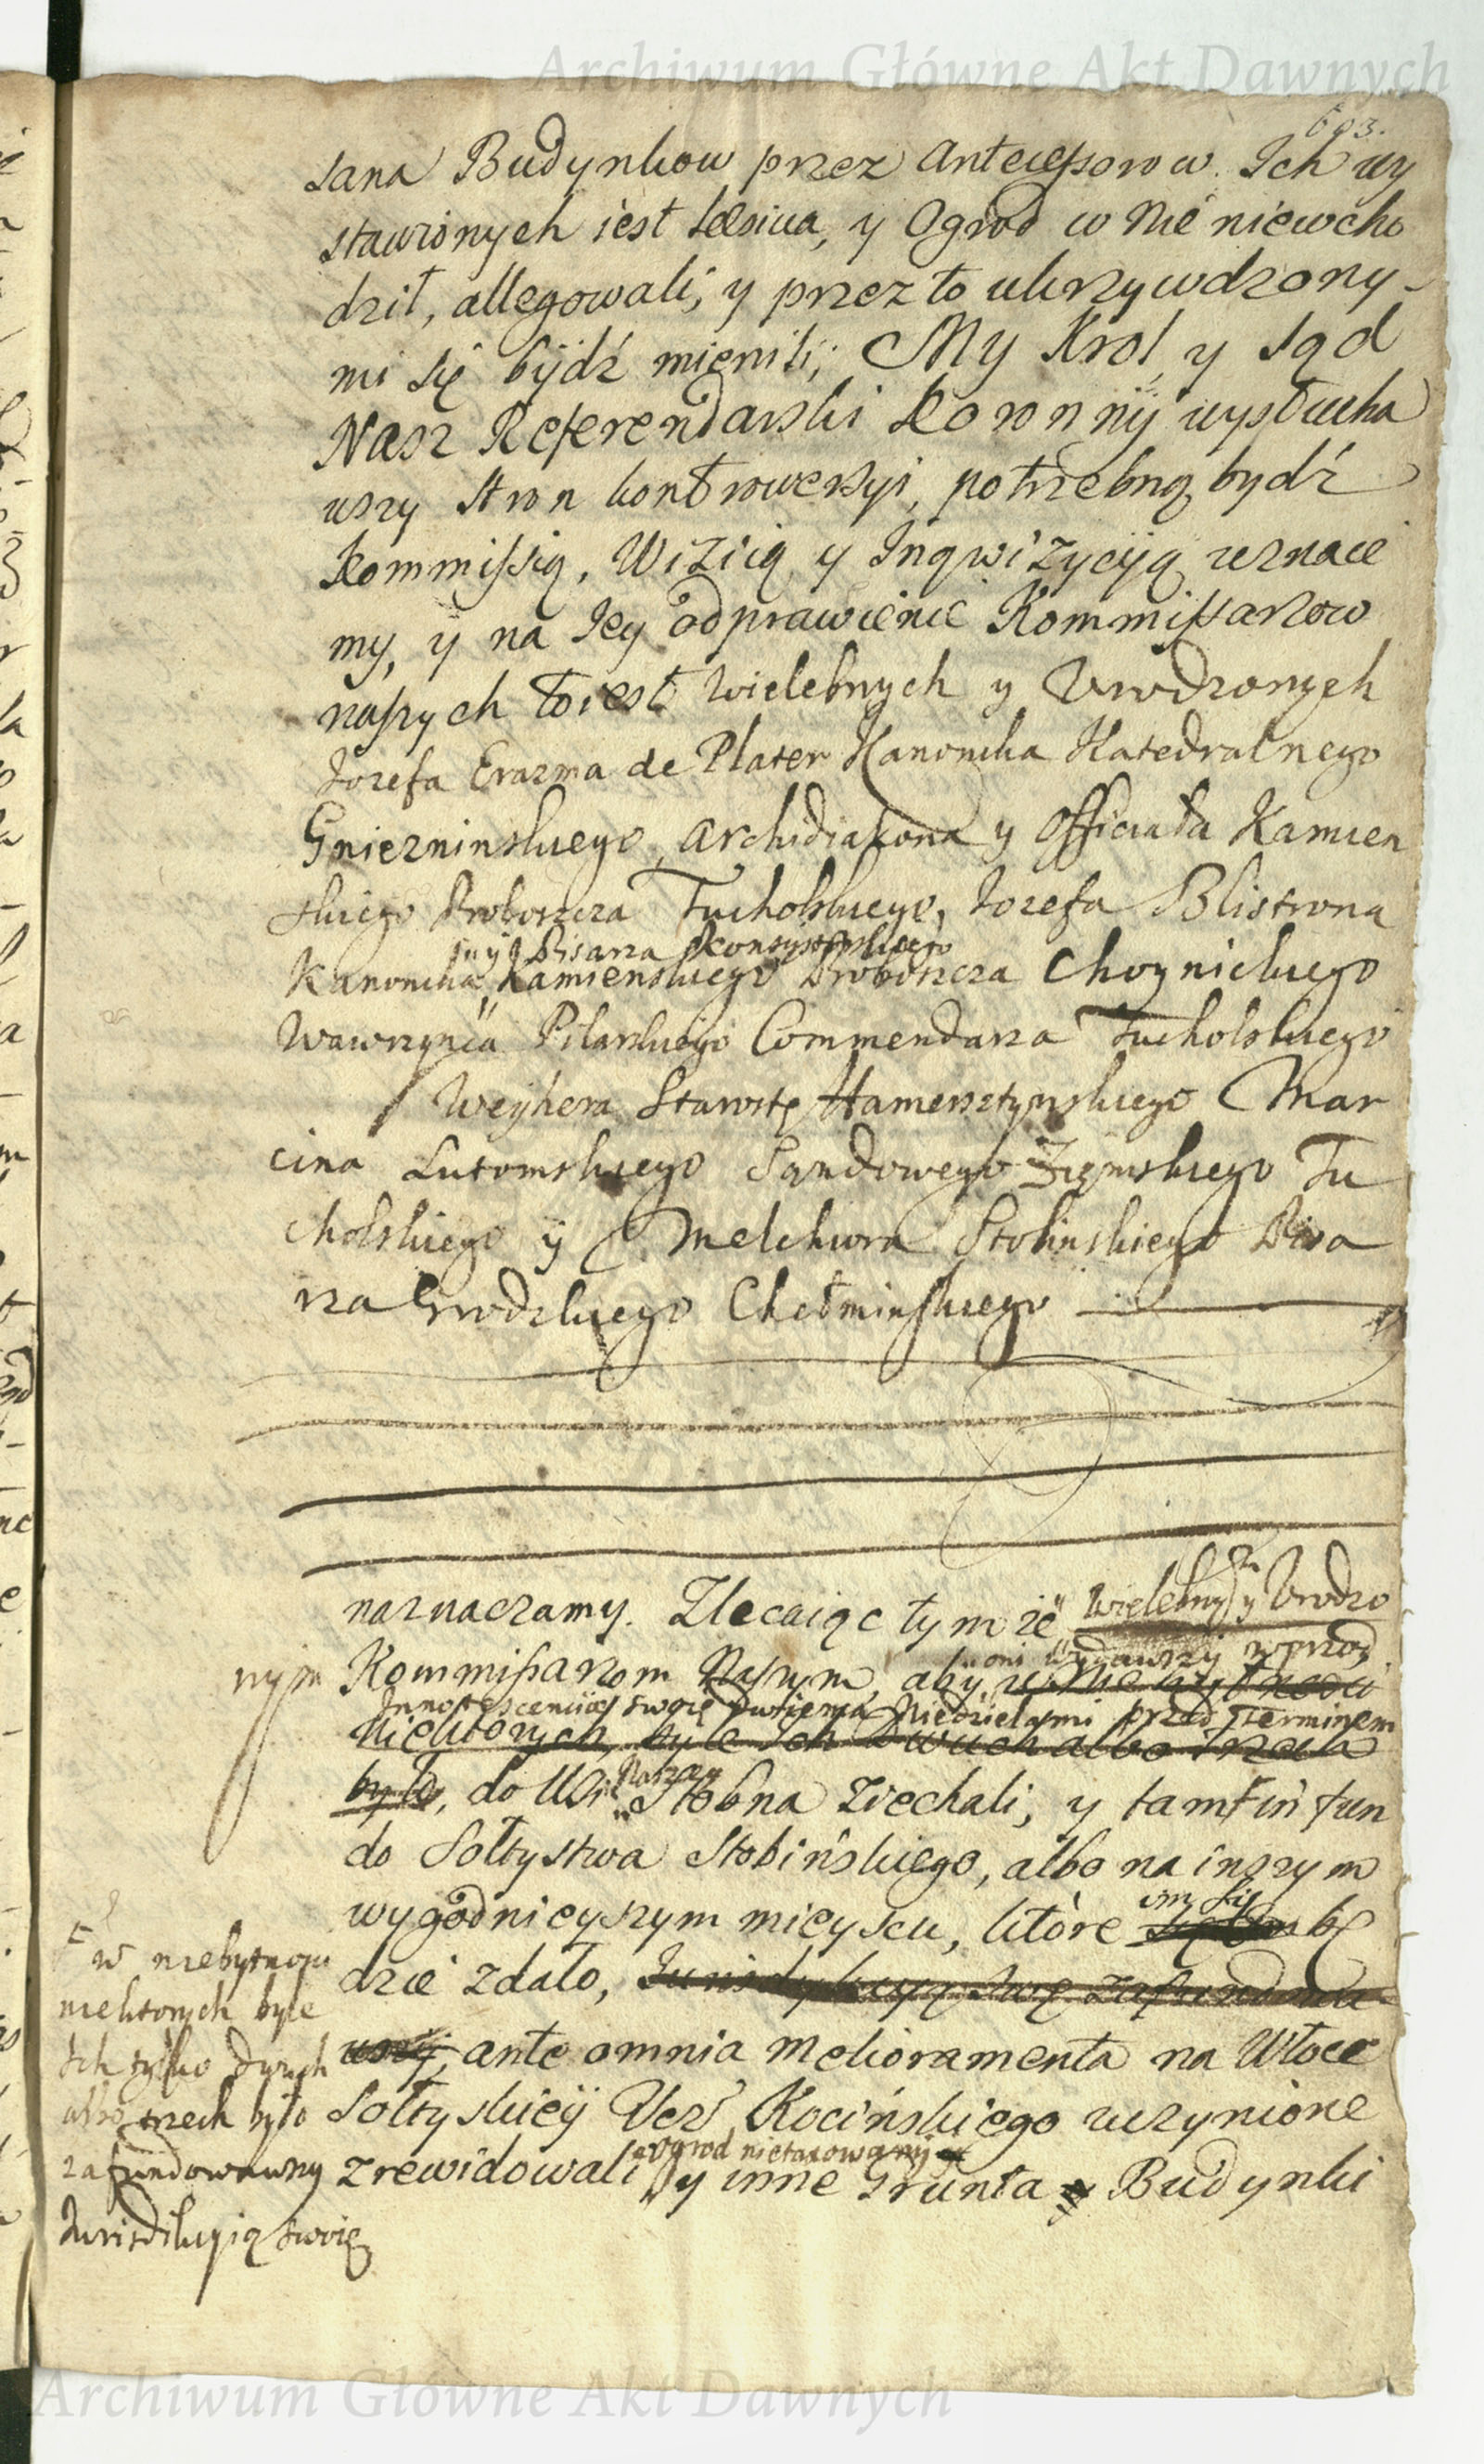 Archiwum Główne Akt Dawnych
603.
sana Budynkow przez Antecessorow Ich wy
stawionych iest lesiua, y Ogrod w Nie niewcho
dził, allegowali, y przez to ukrzywdzony-
mi się bÿdź mienili; My Krol, y Sąd
Nasz Referendarski Koronnÿ wysłucha
wszy Stron kontrowersyi, potrzebną bydź
Kommissią, Wizią y Inqwizycÿą uznaie
my, ÿ na Iey odprawienie Kommissarzow
naszych to iest Wielebnych y Urodzonych
Jozefa Erazma de Plater Kanonika Katedralnego
Gniezninskiego, Archidiakona y Officiała Kamien
skiego Proboszcza Tucholskiego, Jozefa Blistrona
y Pisarza Konsystorskiego
Kanonika Kamienskiego Proboszcza Choynickiego
Wawrzynca Pilarskiego Commendarza Tucholskiego
Weÿhera Starostę Hamersztynskiego Mar
cina Lutomskiego Sąndowego Ziemskiego Tu
cholskiego ÿ Melchiora Stolinskiego Pisa
rza Grodzkiego Chełminskiego
naznaczamy. Zlecaiąc tymże Wielebnÿ y Urodzo
nym Kommissarzom Naszym, aby oni wydawszy wprzod
Innotescencÿe swoię dwiema Niedzielami przed Terminem
niektorych, byle Ich dwuch albo trzech
było, do Wsi Naszey Stobna ziechali, y tam F in fun
do Sołtystwa Stobińskiego, albo na inszym
wygodnieyszym mieyscu, które im się bę
dzie zdało, Jurisdykcyę swę zafundowa
wszy, ante omnia Meliioramenta na Włoce
Sołtyskieÿ Ucz. Kocińskiego uczynione
zrewidowali Ogrod nietaxowanÿ y inne Grunta y Budynki
F w niebytnosci
niektorych byle
Ich tylko dwuch
albo trzech było
zafundowawszy
Jurisdikcyią swoię
Archiwum Główne Akt Dawnych